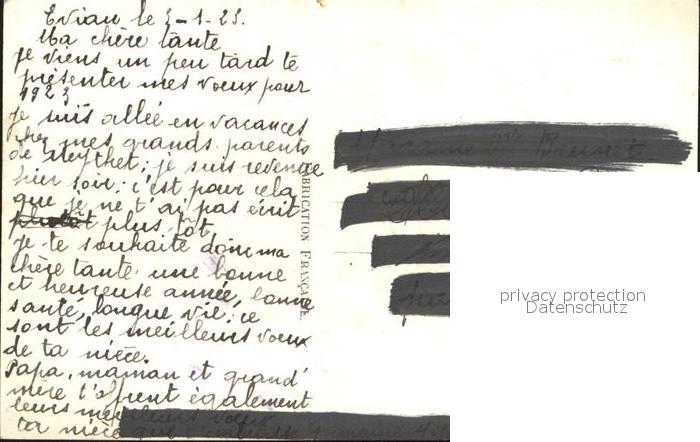 Evian le 3-1-23.
Ma chère tante
je viens un peu tard te
présenter mes voeux pour
1923
je suis allée en vacances
chez mes grands parents
de Meythet; je suis revenue
hier soir: c'est pour cela
que je ne t'ai pas écrit
plus tôt
je te souhaite donc ma
chère tante une bonne
et heureuse année, bonne
santé, longue vie: ce
sont les meilleurs voeux
de ta nièce.
Papa, maman et grand'
mère t'offrent également
leurs meilleurs voeux
ta nièce
FABRICATION FRANÇAISE.
privacy protection
Datenschutz